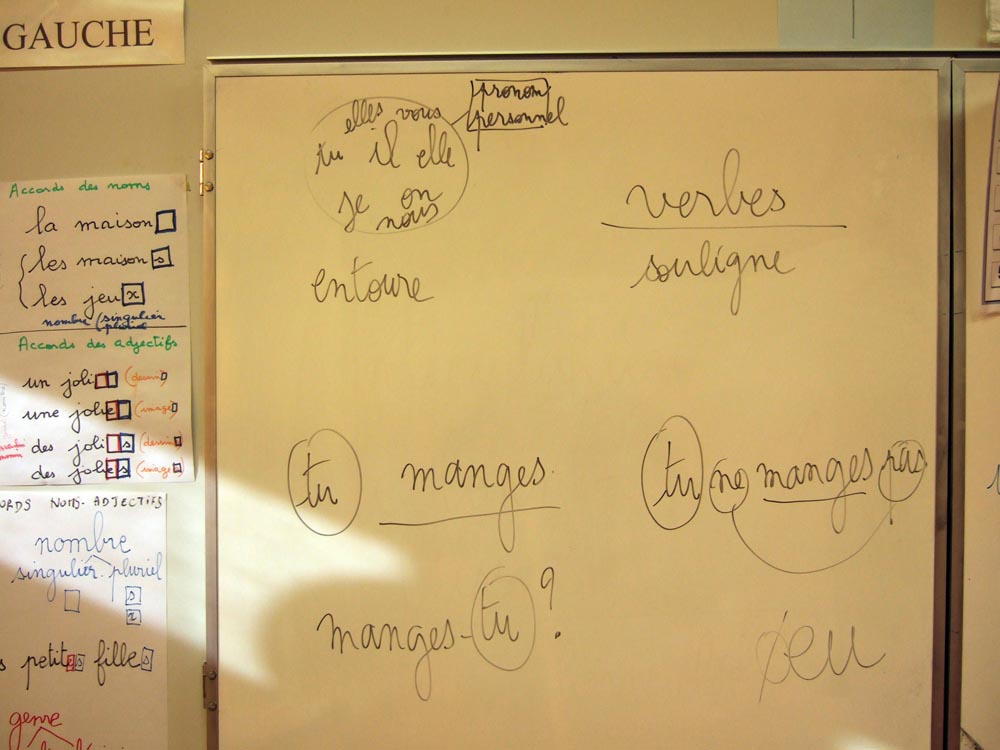 GAUCHE
Accords des noms
la maison
les maisons
les jeux
nombre (singulier
pluriel
Accords des adjectifs
un joli (dessin)
une jolie (image)
des jolis (dessins)
des jolies (images)
NOMS-ADJECTIFS
nombre
singulier pluriel
s
x
petites filles
genre
pronom
personnel
elles vous
tu il elle
je on
nous
entoure
verbes
souligne
tu manges.
tu ne manges pas
manges-tu ?
jeu